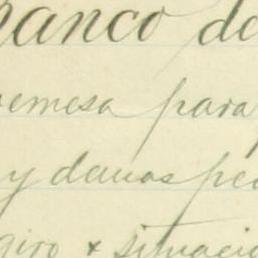 anco de
emesa para
y damos pe
giro + situacio